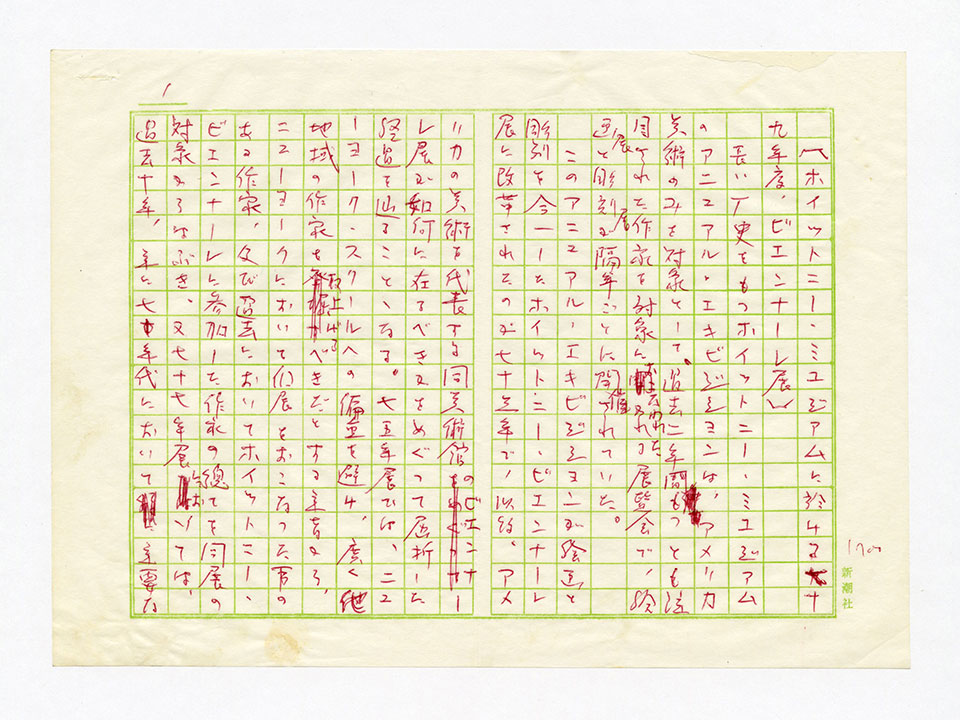 〈ホイットニー・ミユジアムに於ける七十
九年度、ビエンナーレ展〉
長い一史をもつホイットニー・ミュジアム
のアニユアル・エキビジションは、アメリカ
美術のみを対象として、過去二年間もっとも注
目された作家を対象に行なわれる展覧会で、絵
画展と彫刻展を隔年ごとに開催されていた。
このアニユアル・エキビジションが絵画と
彫刻を合一したホイットニー・ビエンナーレ
展に改革されたのが七十三年で、以後、アメ
リカの美術を代表する同美術館のビエンナー
レ展が如何に在るべきかをめぐって屈折した
経過を辿ることとなる。七五年展では、ニュ
ーヨーク・スクールへの偏重を避け、広く他
地域の作家を取上げるべきだとする主旨から、
ニューヨークにおいて個展をおこなった事の
ある作家、及び過去においてホイットニー・
ビエンナーレに参加した作家の総てを同展の
対象からはぶき、又七十七年展においては、
過去十年、主に七十年代において主要な
1
新潮社